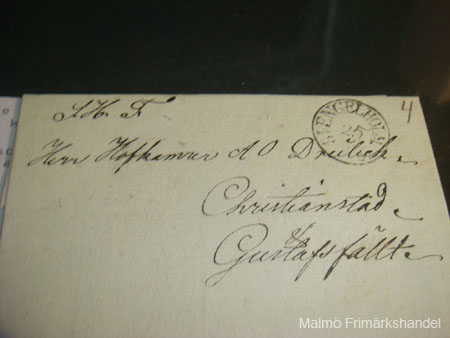 S.H. T.
4
ENGELHOLM
25
Herr Hofkamrer A O
Christianstad
Gustafsfällt
Malmö Frimärkshandel